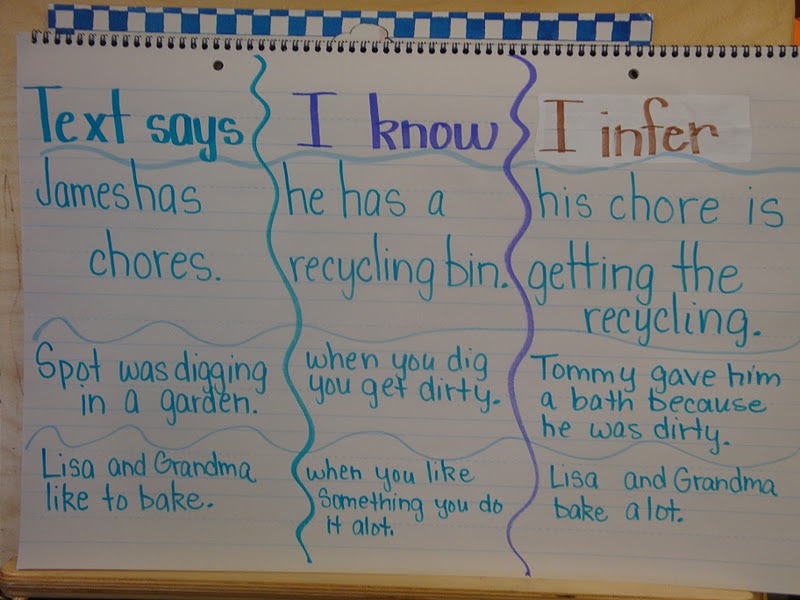 Text says
I know
I infer
James has
chores.
he has a
recycling bin.
his chore is
getting the
recycling.
Spot was digging
in a garden.
when you dig
you get dirty.
Tommy gave him
a bath because
he was dirty.
Lisa and Grandma
like to bake.
when you like
something you do
it alot.
Lisa and Grandma
bake alot.